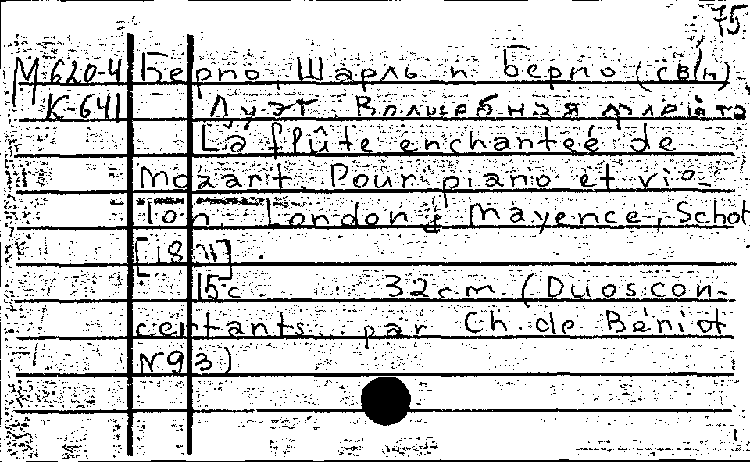 75
М 620-4 Берио, Шарль и Берио (св/п)
К-641 Дуэт. Волшебная флейта
La flûte enchanteé de
Mozart. Pour piano et vio-
lon. London; Mayence, Schot
[18 71]
15c 32cm. (Duos con-
certants par Ch. de Bériot
N93)